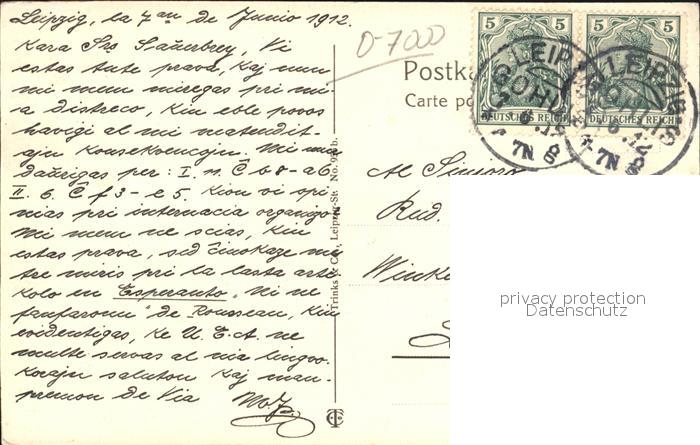 Leipzig, la 7an de Junio 1912.
Kara Sro Saŭerbrey, Vi
estas tute prava, kaj nun
mi mem miregas pri mi-
a distreco, kiu eble povos
havigi al mi malendit-
ajn konsekvencojn. Mi nun
daŭrigas per: I. n. Ĉ b 8 - a 6
II. 6. Ĉ f 3 - e 5. Kion vi opi
nias pri internacia organizo
Mi mem ne scias, kiu
estas prava, sed ĉiuokaze mi
tre miris pri la lasta arti-
kolo en Esperanto „Ni ne
fanfaronu" de Rousseau, kiu
evidentigas, ke U. E. A. ne
multe servas al nia lingvo.
Korajn salutojn kaj man-
premon de Via
D-7000
Trinks & Co., Leipzig
Postka
Carte po
5 5 5 5
DEUTSCHES REICH DEUTSCHES REICH
LEIPZIG
GOHLIS
7N 8
Al Sinjoro
Rud.
Winke
privacy protection
Datenschutz